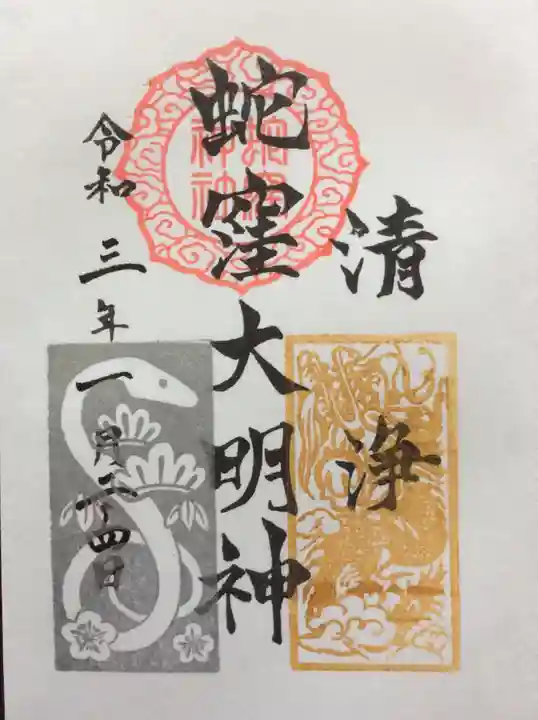 清浄
蛇窪大明神
令和三年一月二十四日
蛇窪神社